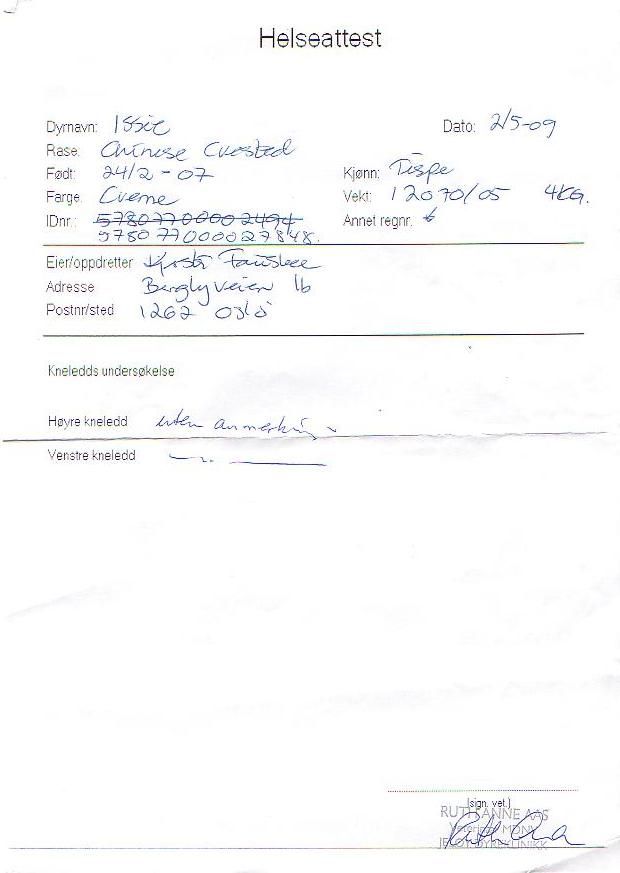 Helseattest
Dyrnavn: Issie Dato: 2/5-09
Rase: Chinese Crested
Født: 24/2-07 Kjønn: Tispe
Farge: Creme Vekt: 12070/05 4KG.
IDnr.: 578077000002494 Annet regnr.
578077000027848.
Eier/oppdretter
Adresse Berglyveien 16
Postnr/sted 1262 Oslo
Kneledds undersøkelse
Høyre kneledd uten anmerkning
Venstre kneledd
(sign. vet.)
RUTH ANNE AAS
Veterinær MDNV
JELØY DYREKLINIKK